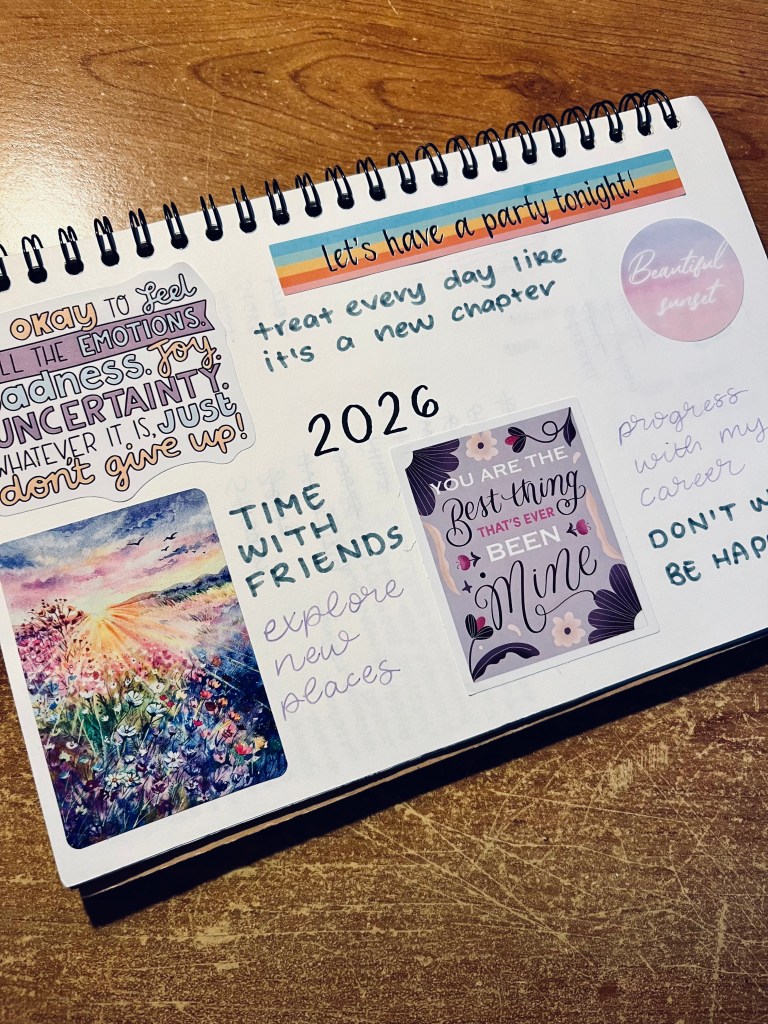 Let's have a party tonight!
treat every day like
it's a new chapter
Beautiful
sunset
OKAY TO feel
ALL THE EMOTIONS.
Sadness. Joy.
UNCERTAINTY.
WHATEVER IT IS, JUST
don't give up!
2026
TIME
WITH
FRIENDS
explore
new
places
YOU ARE THE
Best thing
THAT'S EVER
BEEN
Mine
progress
with my
career
DON'T
BE